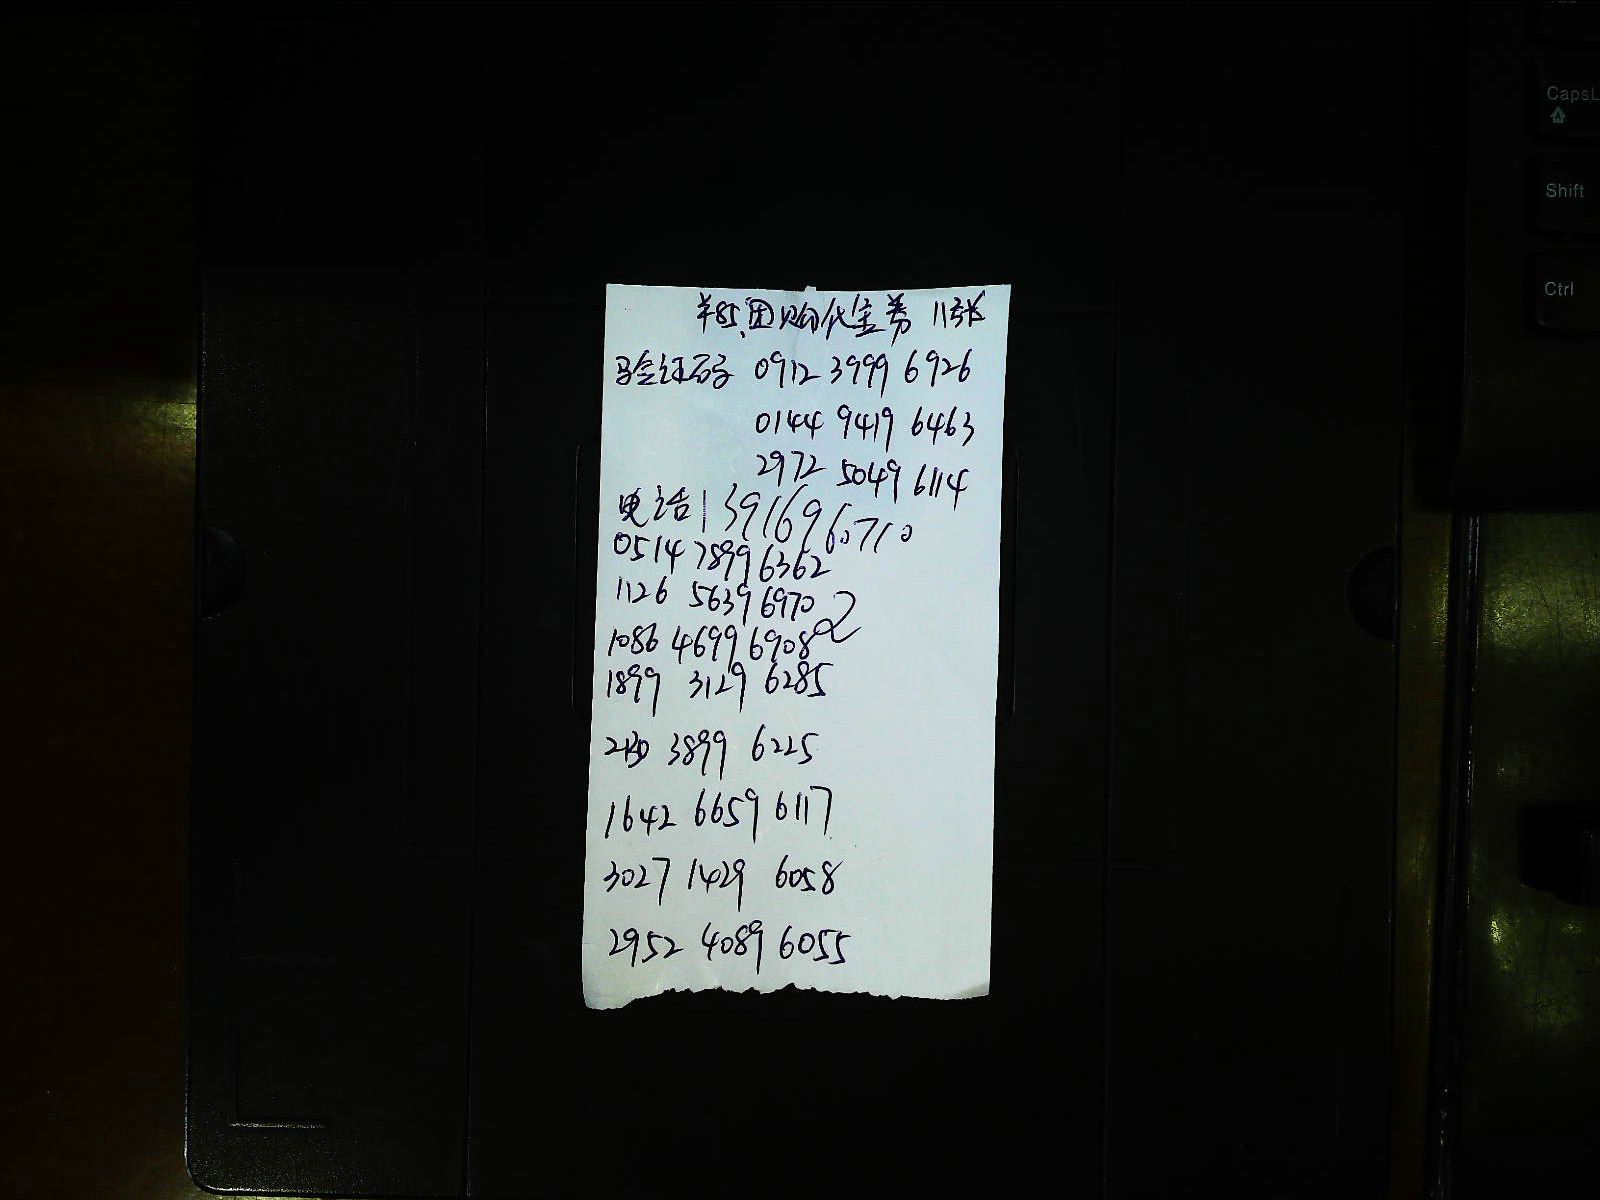 ¥85团购代金券 11张
验证码 0912 3999 6926
0144 9419 6463
2972 5049 6114
电话 13916960710
0514 7899 6362
1126 5639 6970
1086 4699 6908 2
1899 3129 6285
2130 3899 6225
1642 6659 6117
3027 1429 6058
2952 4089 6055
CapsL
Shift
Ctrl